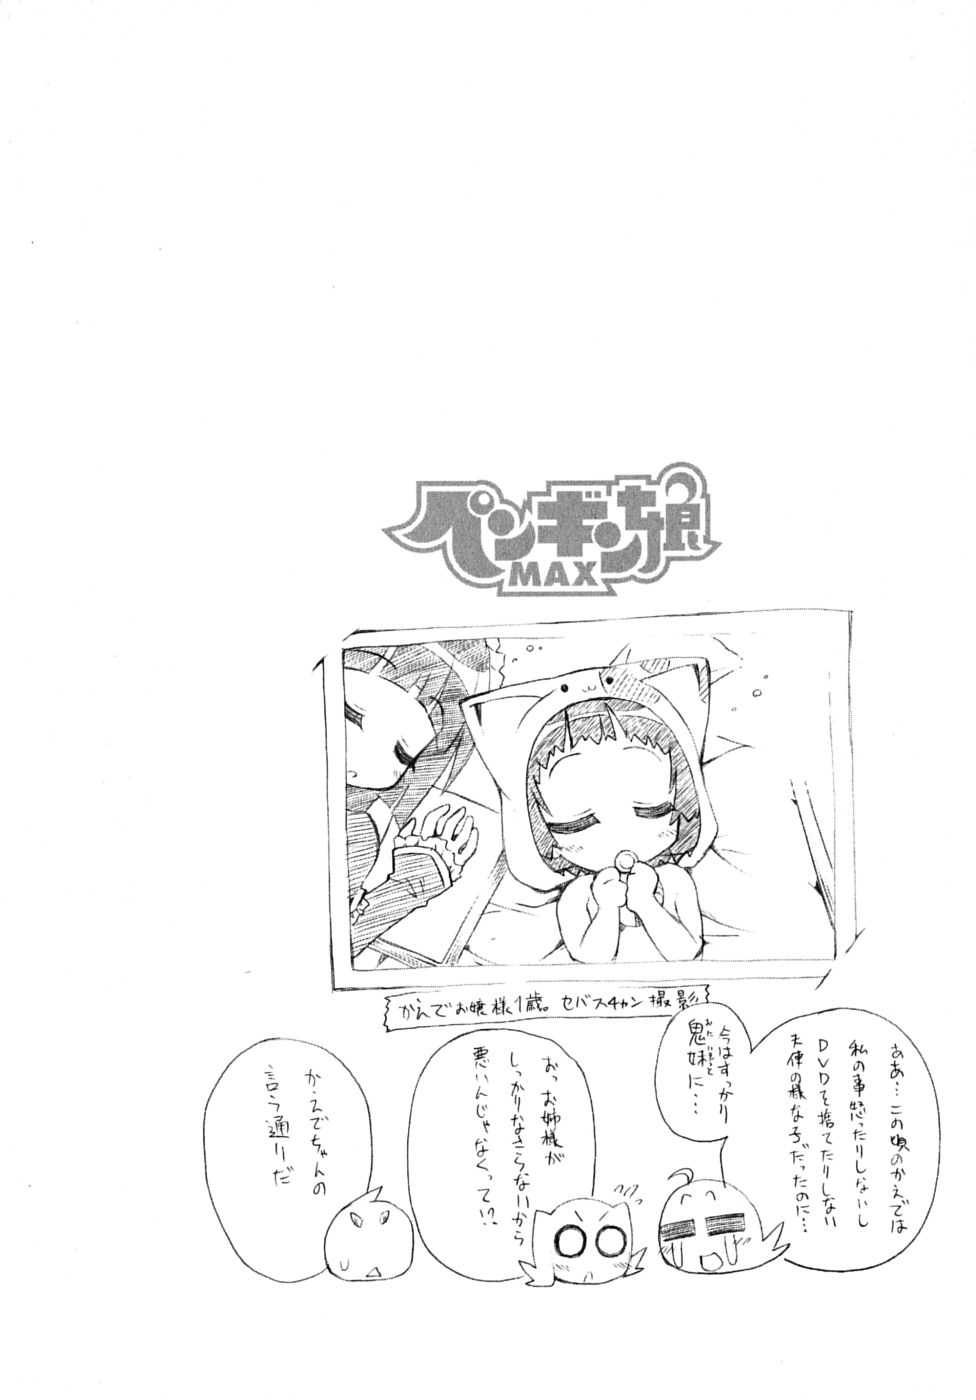 ペンギン娘
MAX
かえでお嬢様1歳。セバスチャン撮影
ああ…この頃のかえでは
私の事怒ったりしないし
DVDを捨てたりしない
天使の様な子だったのに…
今はすっかり
鬼妹に…
おにいもうと
おっお姉様が
しっかりなさらないから
悪いんじゃなくって!?
かえでちゃんの
言う通りだ